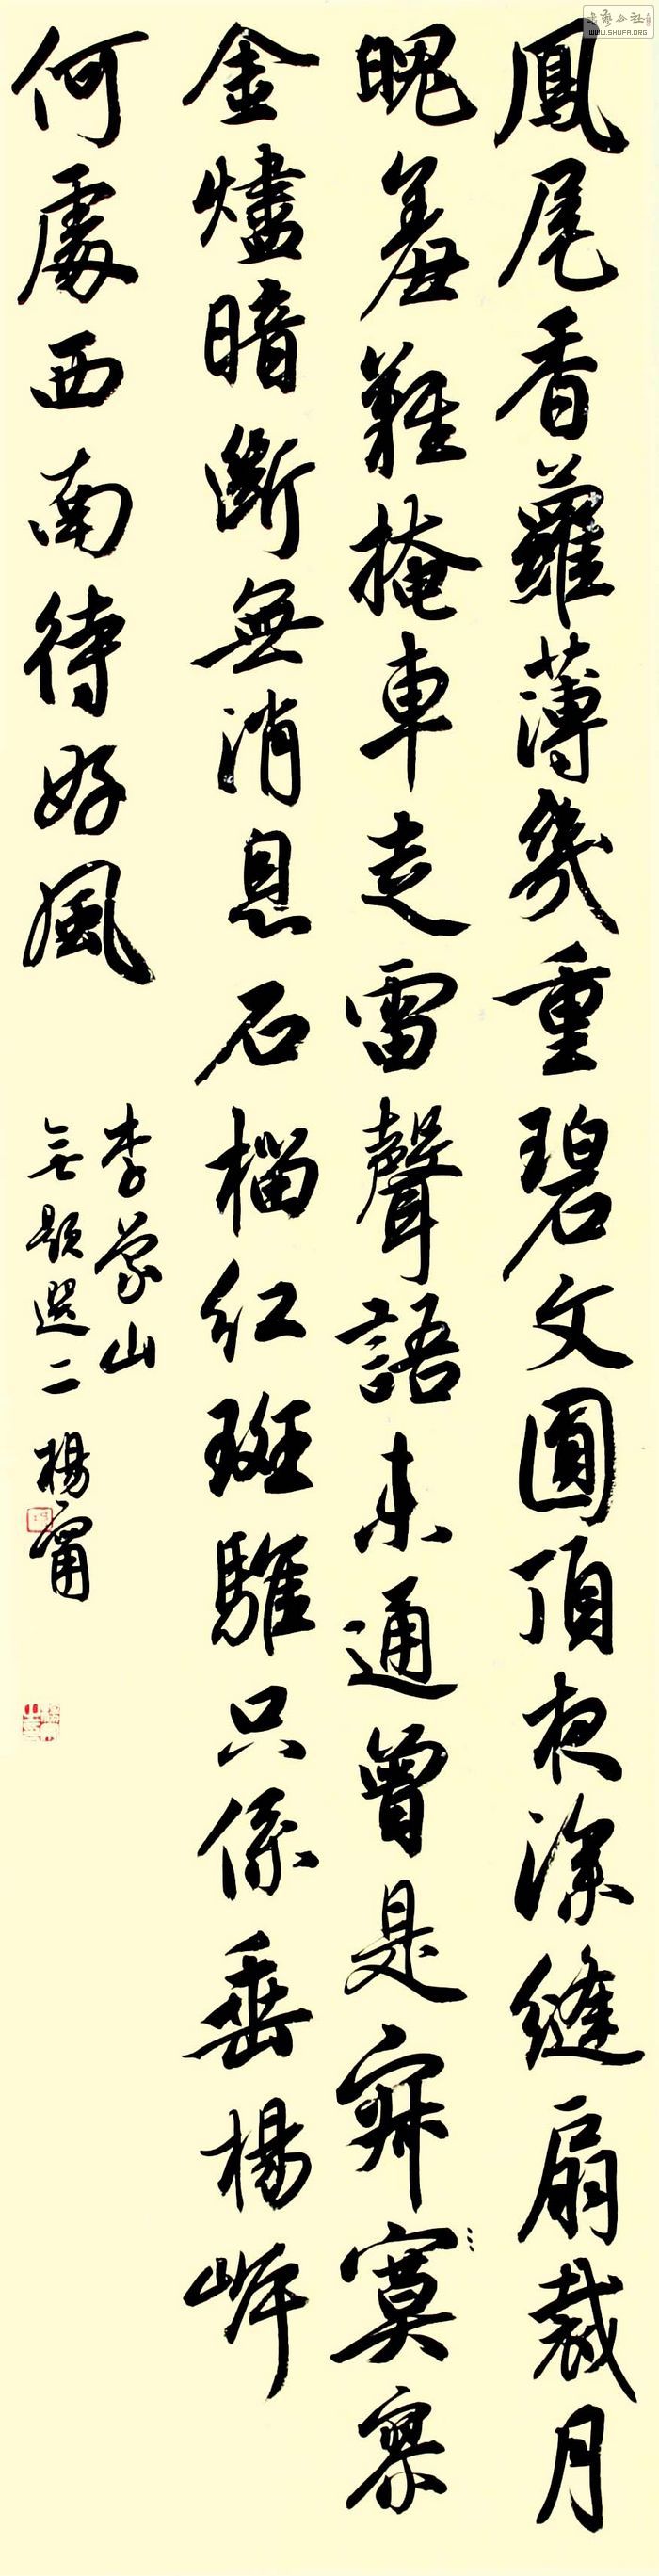 鳳尾香蘿薄幾重碧文圓頂夜深縫扇裁月
魄羞難掩車走雷聲語未通曾是寂寞寥
金燼暗斷無消息石榴紅斑騅只係垂楊岸
何處西南待好風
李義山
无題選二 楊甯
WWW.SHUFA.ORG